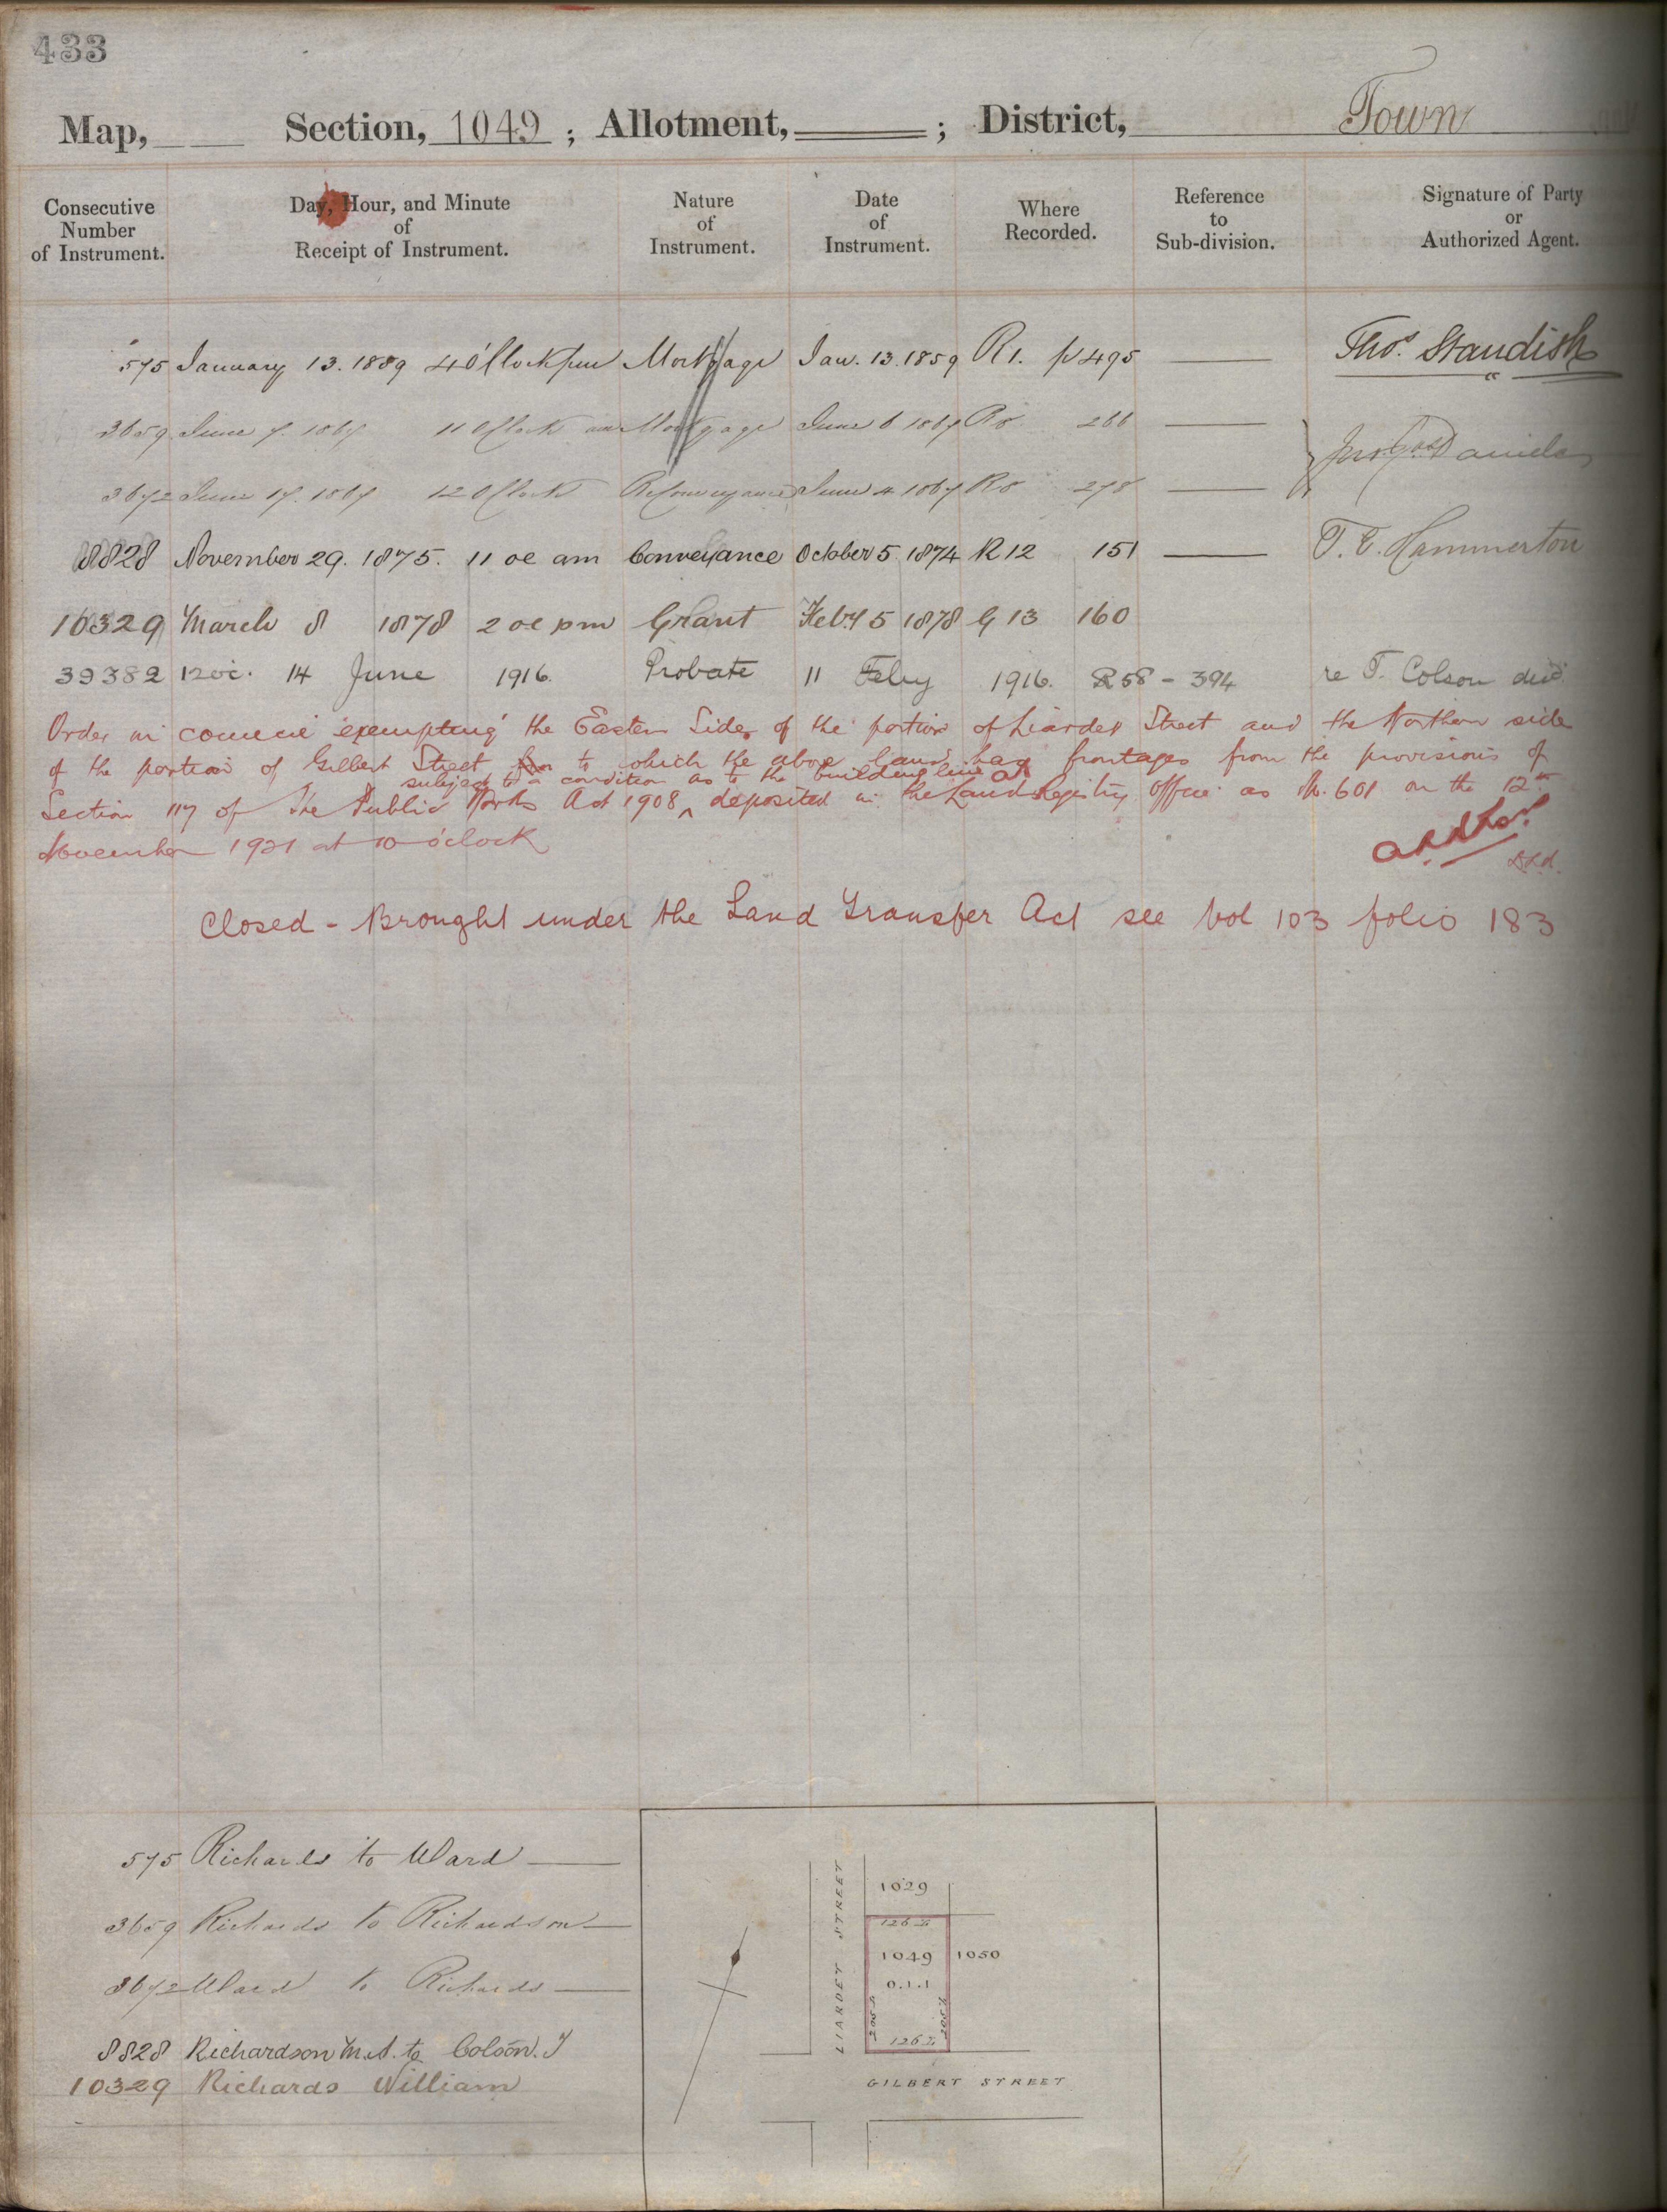 433
Map, Section, 1049 ; Allotment, ; District, Town
Consecutive Number of Instrument.
Day, Hour, and Minute of Receipt of Instrument.
Nature of Instrument.
Date of Instrument.
Where Recorded.
Reference to Sub-division.
Signature of Party or Authorized Agent.
575 January 13. 1859 4 O'Clock pm Mortgage Jan. 13. 1859 R 1. p 495 Thos. Standish
3659 June 7. 1867 11 OClock am Mortgage June 6 1867 R8 266
3672 June 17. 1867 12 OClock Reconveyance June 4 1867 R8 278 Daniels
8828 November 29. 1875. 11 oc am Conveyance October 5. 1874 R 12 151 T. E. Hammerton
10329 March 8 1878 2 oc pm Grant Feby 5 1878 G 13 160
39382 12 oc. 14 June 1916. Probate 11 Feby 1916. R 58 - 394 re T. Colson decd
Order in council exempting the Eastern Side of the portion of Liardet Street and the Northern side
of the portion of Gilbert Street to which the above land has frontages from the provisions of
subject to a condition as to the building line
Section 117 of The Public Works Act 1908 deposited in the Land Registry Office as No. 601 on the 12th
November 1921 at 10 o'clock
DLR.
Closed - Brought under the Land Transfer Act see Vol 103 folio 183
575 Richards to Ward
3659 Richards to Richardson
3672 Ward to Richards
8828 Richardson M.A. to Colson. T
10329 Richards William
LIARDET STREET
1029
126
1049 1050
0.1.1
205
205
126
GILBERT STREET